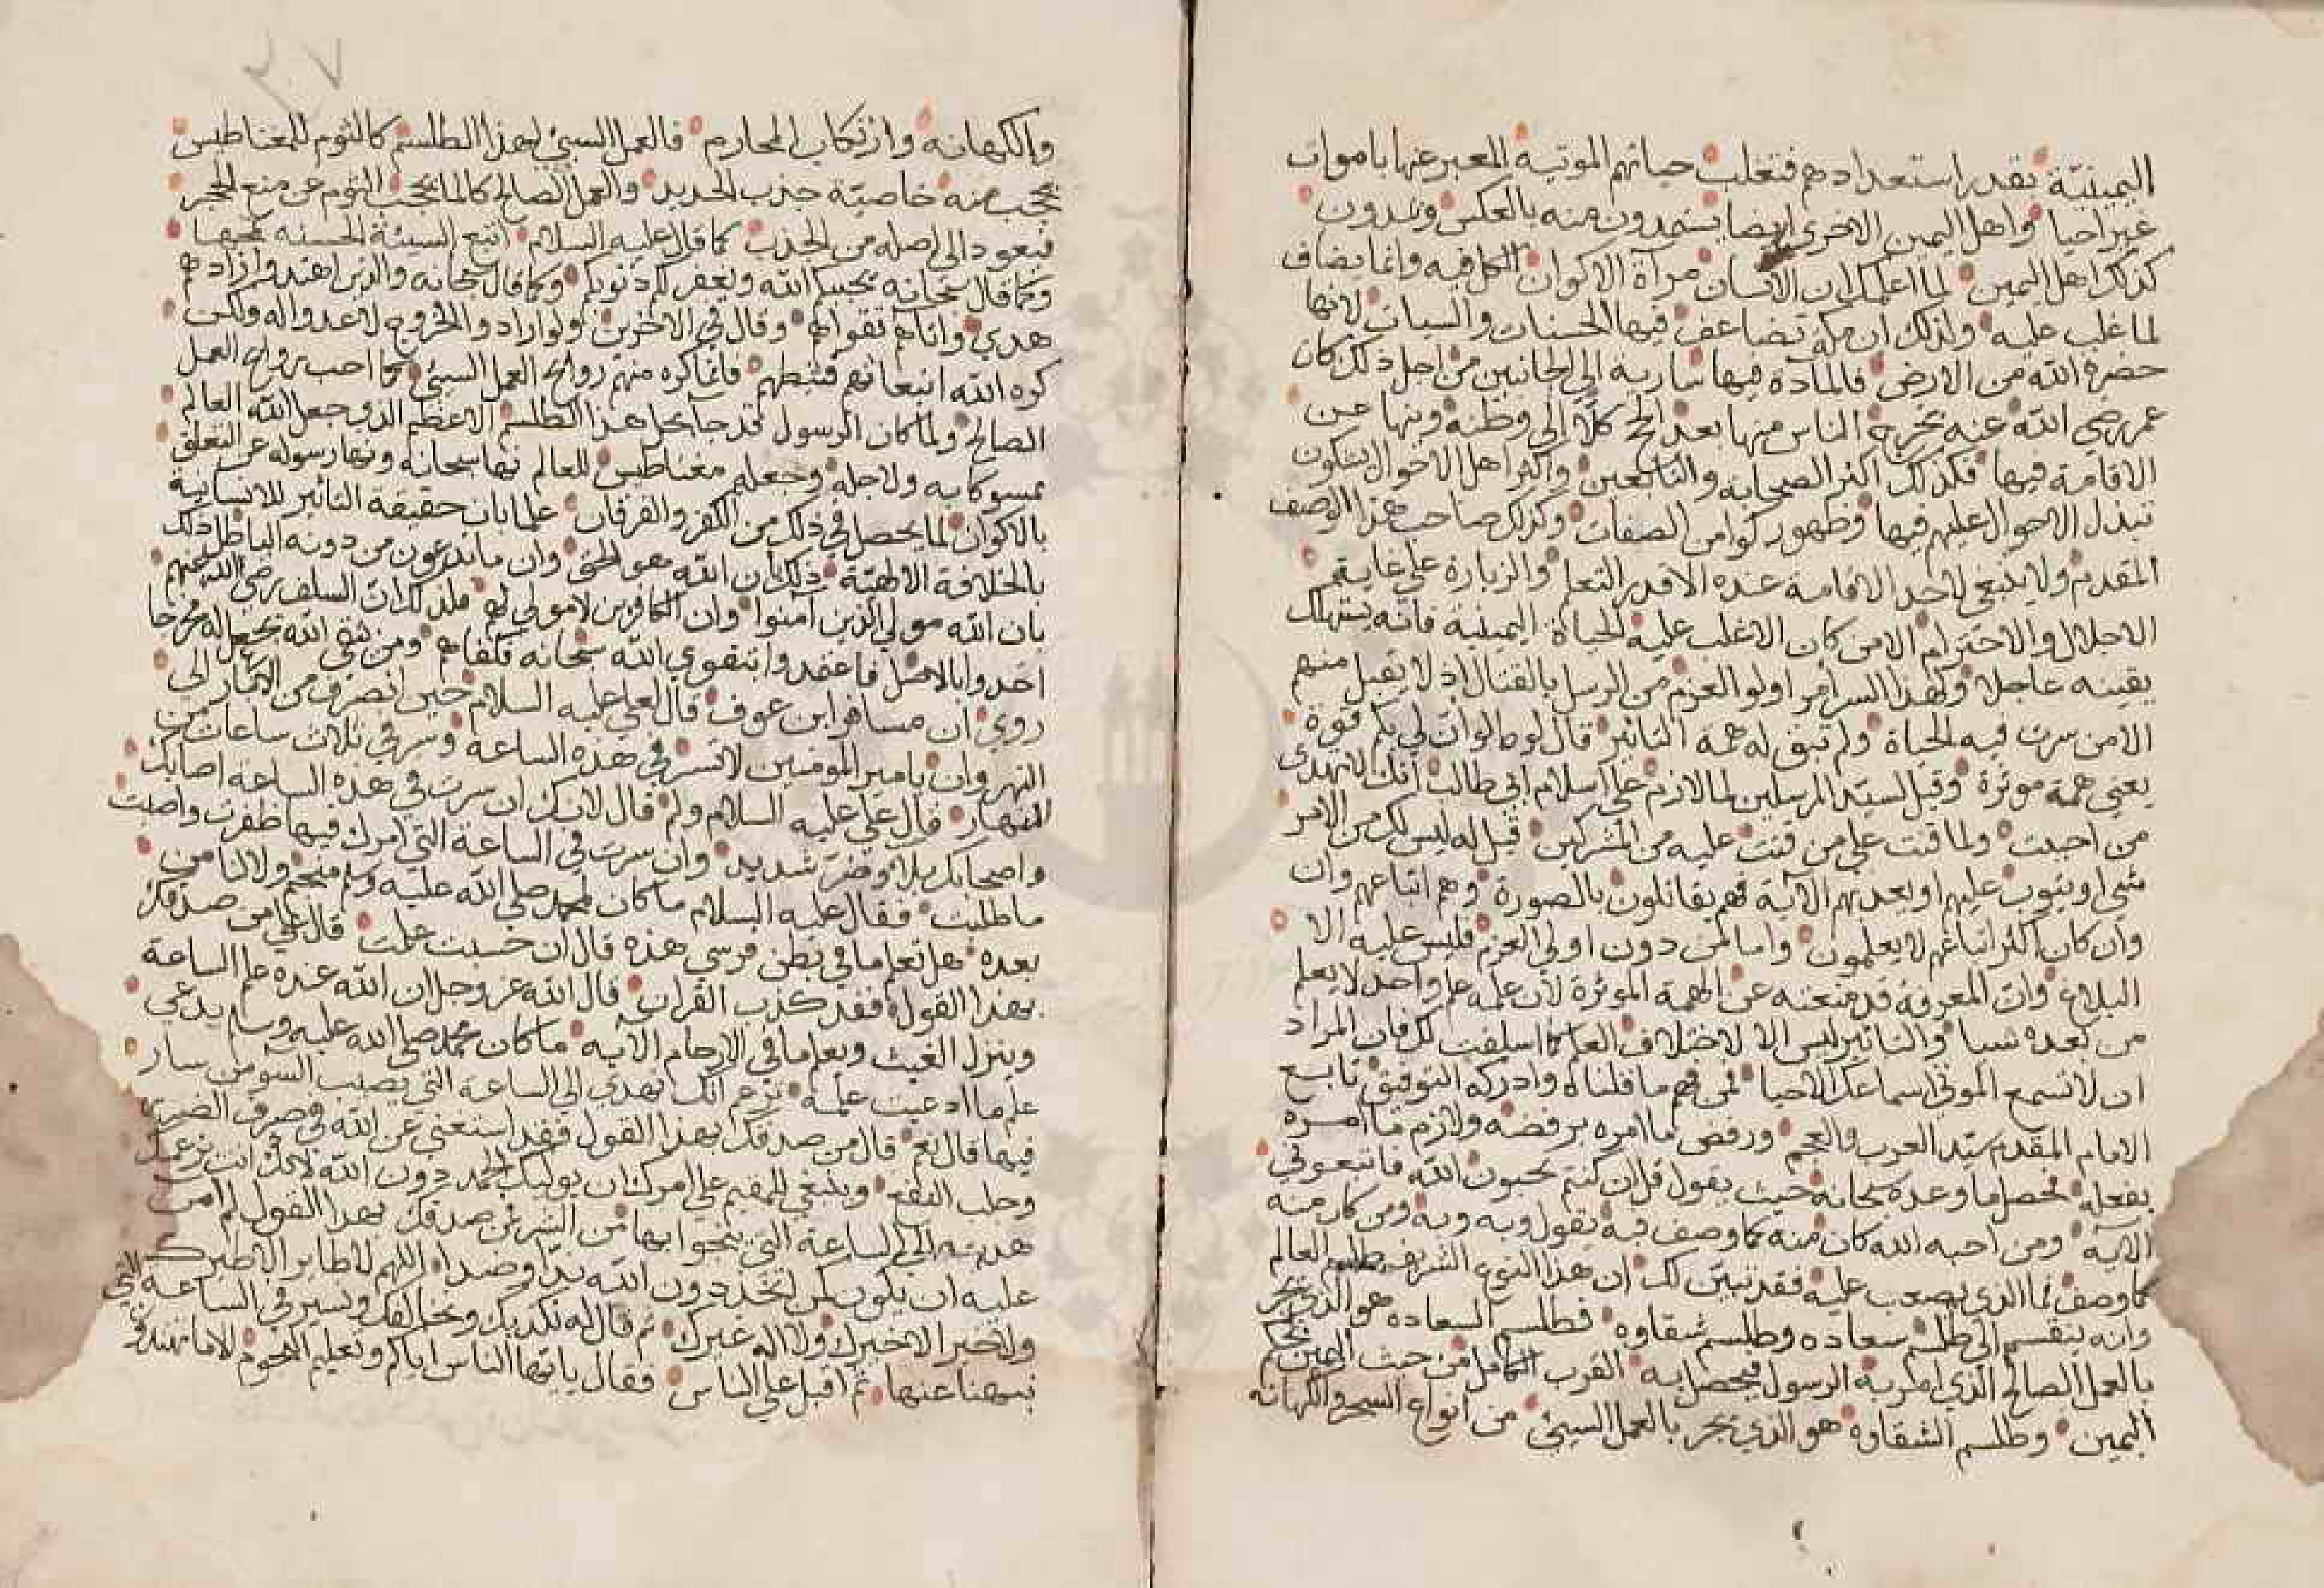 اليمينية بقدر استعدادهم فتغلب حياتهم الموتية المعبر عنها باموات
غير احيا واهل اليمين الاخرى ايضا يستمدون منه بالعكس ويمدون
كذلك اهل اليمين لما اعلمك ان الانسان مرآة الاكوان الكل فيه وانما يضاف
لما غلب عليه ولذلك ان مكة تضاعف فيها الحسنات والسيات لانها
حضرة الله من الارض فالمادة فيها سارية الى الجانبين من اجل ذلك كان
عمر رضي الله عنه يخرج الناس منها بعد الحج كلا الى وطنه وينها عن
الاقامة فيها فكذلك اكثر الصحابة والتابعين واكثر اهل الاحوال يشكون
تبدل الاحوال عليهم فيها وظهور كوامن الصفات وكذلك صاحب هذا الوصف
المقدم ولا ينبغي لاحد الاقامة عنده الا قدر التعلم والزيارة على غاية من
الاجلال والاحترام الا من كان الاغلب عليه الحياة اليمينية فانه يستهلك
يقينه عاجلا ولهذا السر امر اولوا العزم من الرسل بالقتال اذ لا يقبل منهم
الا من سرت فيه الحياة ولم تبق له همة التاثير قال لوط لو ان لي بكم قوة
يعني همة موثرة وقيل لسيد المرسلين لما لازم على اسلام ابي طالب انك لا تهدي
من احببت ولما قنت على من قنت عليه من المشركين قيل له ليس لك من الامر
شي او يتوب عليهم او يعذبهم الآية فهم يقاتلون بالصورة وهم اتباعهم وان
وان كان اكثر اتباعهم لا يعلمون واما من دون اولى العزم فليس عليه الا
البلاغ وان المعرفة قد منعته عن الهمة الموثرة لان علمه علم واحد لا يعلم
من بعده شيا والتاثير ليس الا لاختلاف العلم كما اسلفت لك فان المراد
ان لا تسمع الموتى اسماعك الاحيا فمن فهم ما قلناه وادركه التوفيق تابع
الامام المقدم سيد العرب والعجم ورفض ما امره برفضه ولازم ما امره
بفعله فحصل ما وعده سبحانه حيث يقول قل ان كنتم تحبون الله فاتبعوني
الآية ومن احبه الله كان منه كما وصف فبه يقول وبه وبه ومن كان منه
كما وصف فما الذي يصعب عليه فقد تبين لك ان هذا النوع الشريف طلسم العالم
وانه ينقسم الى طلسم سعاده وطلسم شقاوه فطلسم السعاده هو الذي يجر
بالعمل الصالح الذي امر به الرسول فيحصل به القرب الكامل من حيث اليمين بحكم
اليمين وطلسم الشقاوة هو الذي يجر بالعمل السيئ من انواع السحر والكهانه
والكهانه وارتكاب المحارم فالعمل السيئ لهذا الطلسم كالثوم للمغناطيس
يحجب منه خاصية جذب الحديد والعمل الصالح كالما يحجب الثوم عن منع الحجر
فيعود الى اصله من الجذب كما قال عليه السلام اتبع السيئة الحسنه تمحها
وكما قال سبحانه يحببكم الله ويغفر لكم ذنوبكم وكما قال سبحانه والذين اهتدوا زادهم
هدي واتاهم تقواهم وقال في الاخرين ولو ارادوا الخروج لاعدوا له ولكن
كره الله انبعاثهم فثبطهم فانما كره منهم روائح العمل السيئ كما احب روائح العمل
الصالح ولما كان الرسول قد جا بحل هذا الطلسم الاعظم الذي جعل الله العالم
ممسوكا به ولاجله وجعله مغناطيس للعالم نها سبحانه ونها رسوله عن التعلق
بالاكوان لما يحصل في ذلك من الكفر والفرقان علما بان حقيقة التاثير للانسانية
بالخلافة الالهية ذلك بان الله هو الحق وان ما تدعون من دونه الباطل ذلك
بان الله مولى الذين آمنوا وان الكافرين لا مولى لهم فلذلك ان السلف رضي الله عنهم
اخذوا بالاصل فاعتمدوا بتقوى الله سبحانه فكفاهم ومن يتق الله يجعل له مخرجا
روي ان مسافر ابن عوف قال لعلي عليه السلام حين انصرف من الانبار الى
النهروان يا مير المومنين لا تسر في هذه الساعة وسر في ثلاث ساعات من
النهار قال علي عليه السلام ولم قال لانك ان سرت في هذه الساعة اصابك
واصحابك بلا وضر شديد وان سرت في الساعة التي امرك فيها ظفرت واصبت
ما طلبت فقال عليه السلام ما كان لمحمد صلى الله عليه وسلم منجم ولا لنا من
بعده هل تعلم ما في بطن فرسي هذه قال ان حسبت علمت قال علي من صدقك
بهذا القول فقد كذب القران قال الله عز وجل ان الله عنده علم الساعة
وينزل الغيث ويعلم ما في الارحام الآيه ما كان محمد صلى الله عليه وسلم يدعي
علم ما ادعيت علمه تزعم انك تهدي الى الساعة التي يصيب السو من سار
فيها قال نعم قال من صدقك بهذا القول فقد استغنى عن الله في صرف الضر
وجلب النفع وينبغي للمقيم على امرك ان يوليك الحمد دون الله لانك انت تزعم
هديته الى الساعة التي ينجوا بها من الشر فمن صدقك بهذا القول لم امن
عليه ان يكون كمن اتخذ دون الله ندا وضدا اللهم لا طاير الا طيرك
ولا خير الا خيرك ولا اله غيرك ثم قال له نكذبك ونخالفك ونسير في الساعة التي
نهيتنا عنها ثم اقبل على الناس فقال يايها الناس اياكم وتعليم النجوم الا ما تهتدون